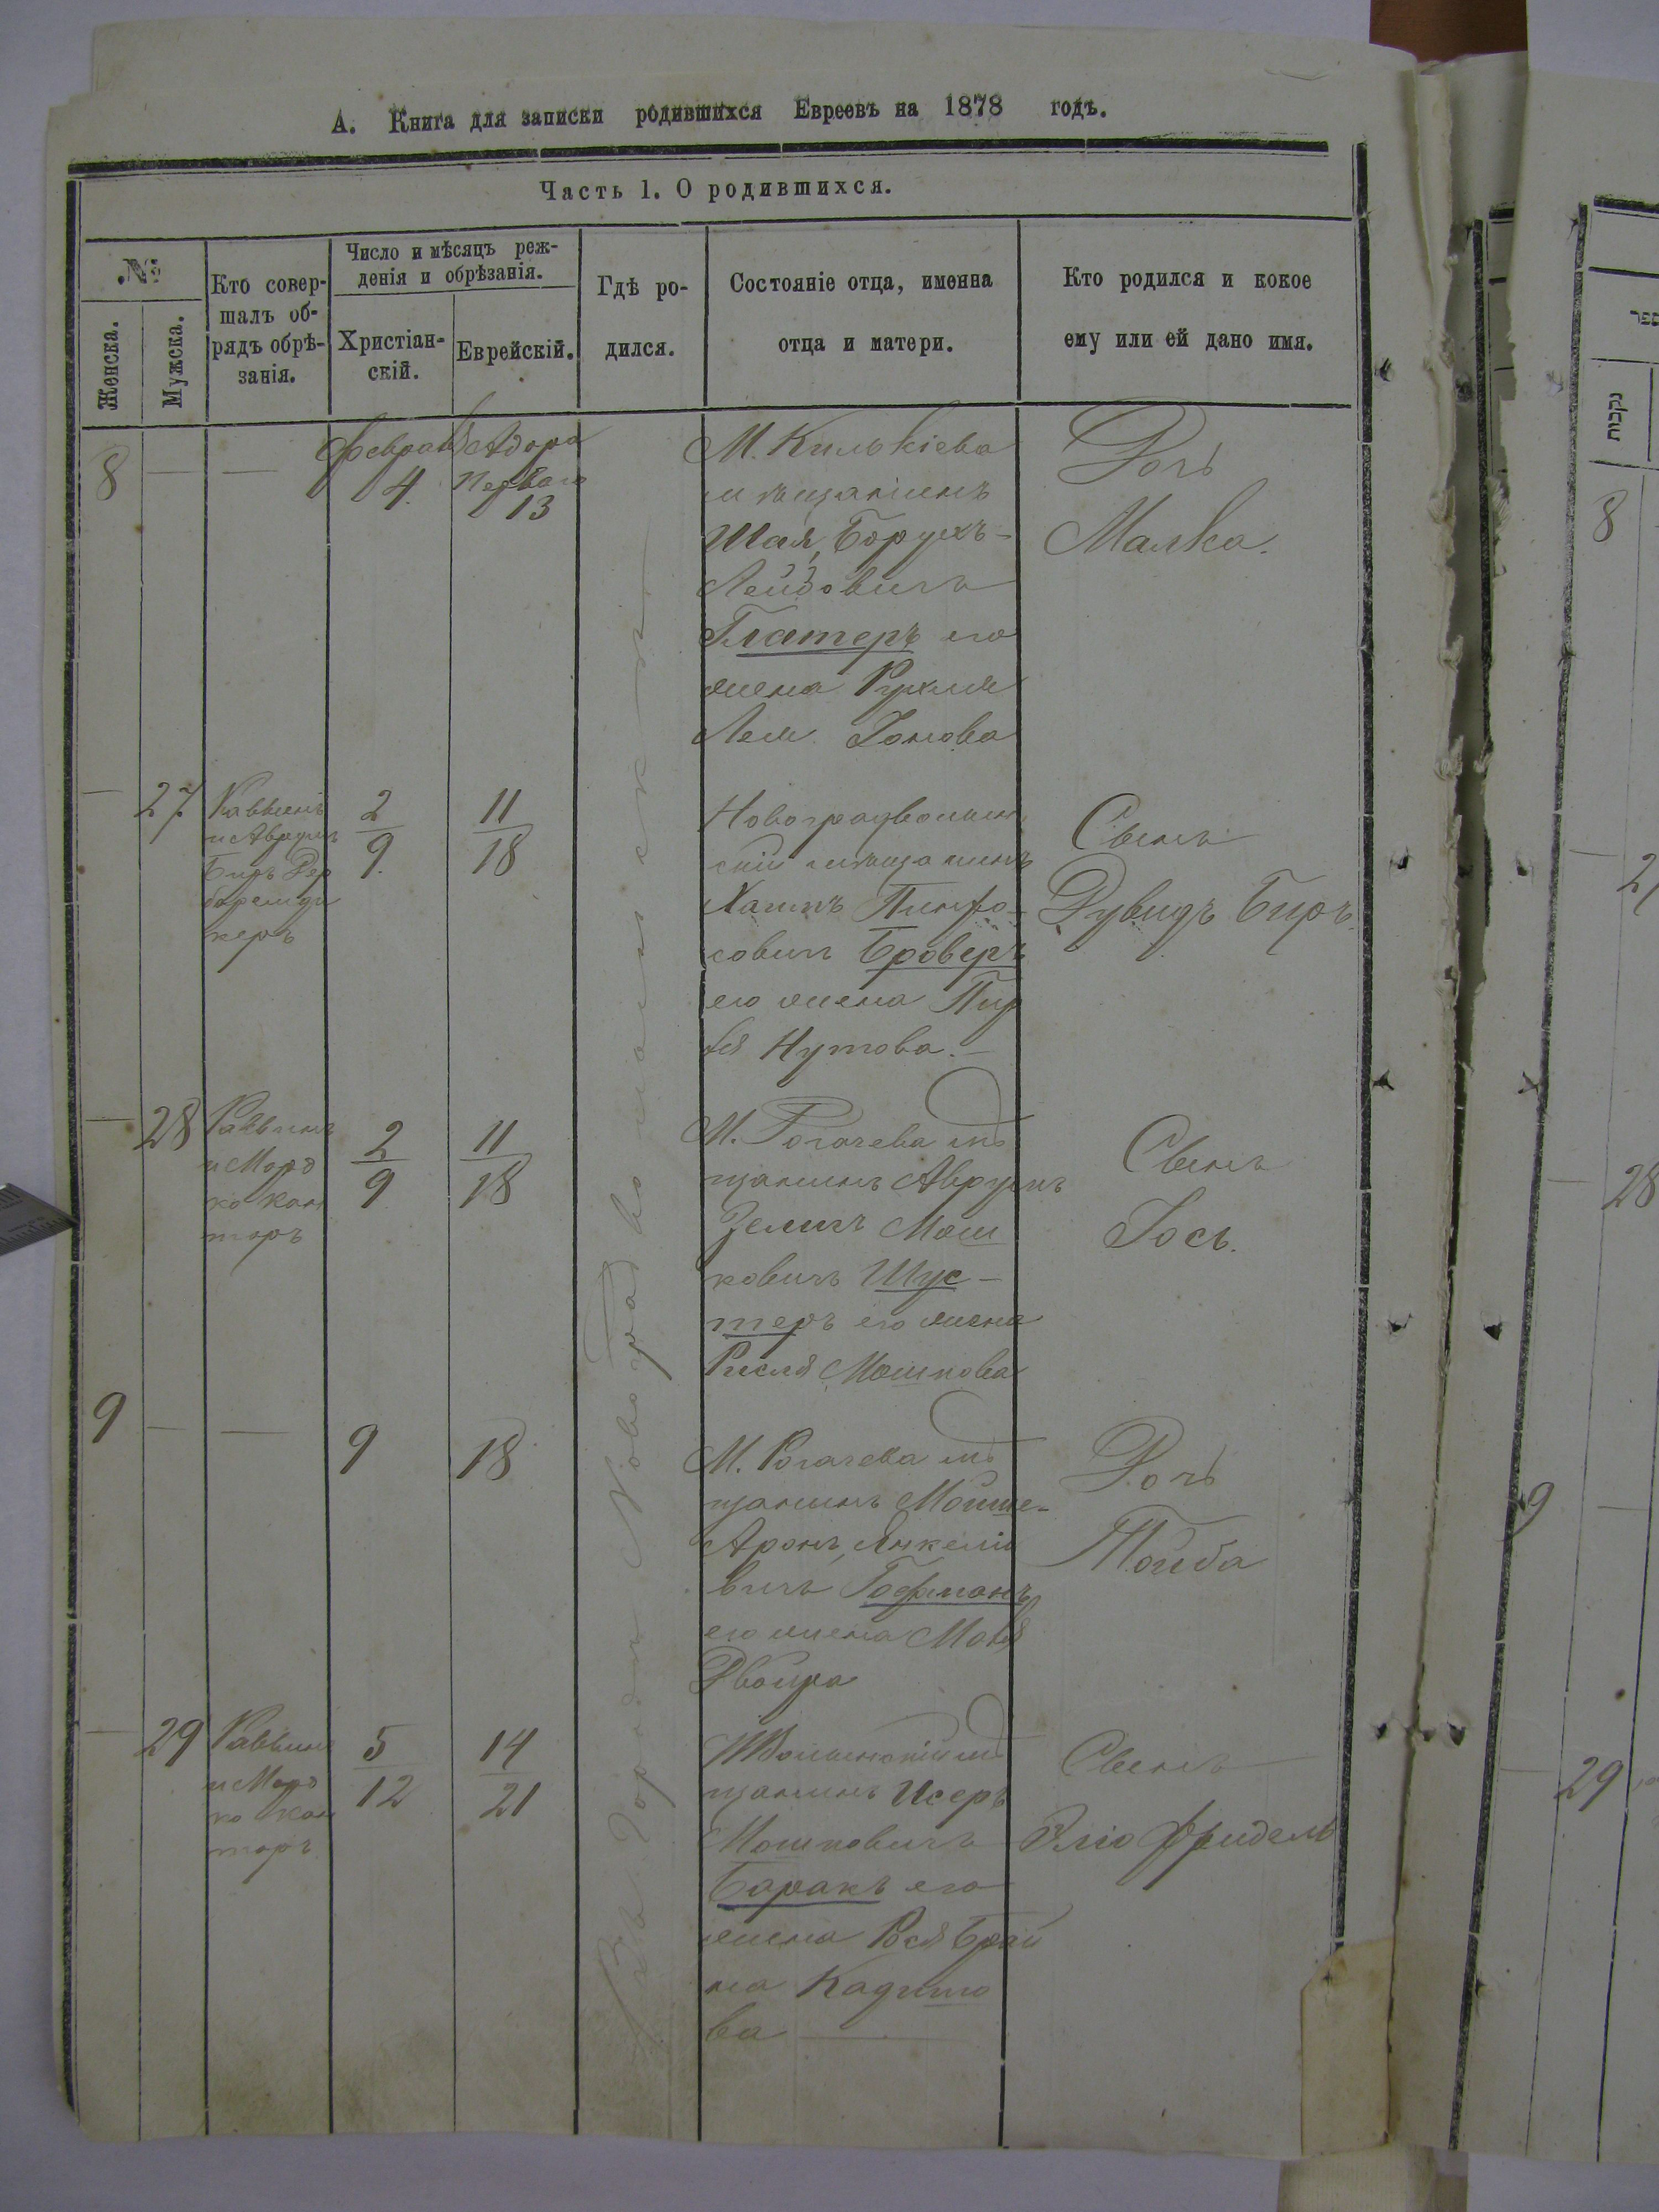 А. Книга для записки родившихся Евреевъ на 1878 годъ.
Часть 1. О родившихся.
№
Женска.
Мужска.
Кто совер-
шалъ об-
рядъ обрѣ-
занія.
Число и мѣсяцъ реж-
денія и обрѣзанія.
Христіан-
скій.
Еврейскій.
Гдѣ ро-
дился.
Состояніе отца, именна
отца и матери.
Кто родился и кокое
ему или ей дано имя.
Въ Городѣ Новоградволынскѣ
8 — —
Феврал
4.
Адара
Первого
13
М. Килькіева
мѣщанинъ
Шая, Борухъ-
Лейбовичъ
Глатеръ его
жена Рухля
Лея
Дочь
Малка.
— 27
Раввинъ
и Аврумъ
Беръ
2
9.
11
18
Новоградволын
скій мѣщанинъ
Хаимъ Пинхо-
совичъ Броверъ
его жена
Нутова.—
Сынъ
Дувидъ Беръ.
— 28
Раввинъ
и Морд
ко Кан
торъ
2
9
11
18
М. Рогачева мѣ
щанинъ Аврумъ
Зелигъ Мош
ковичъ Шус-
теръ его жена
Рисля Мошкова
Сынъ
Іось.
9 — —
9
18
М. Рогачева мѣ
щанинъ Мойше-
Аронъ, Янкелио
вичъ Гофманъ
его жена
Двойра
Дочь
Тойба
— 29
Раввинъ
и Морд
ко Кан
торъ
5
12
14
21
НВолынскій мѣ
щанинъ Исеръ
Мошковичъ
Баракъ его
жена Рося Брай
на Кадишо
ва —
Сынъ
Эліо Фридель
נקבות
8
27
28
9
29